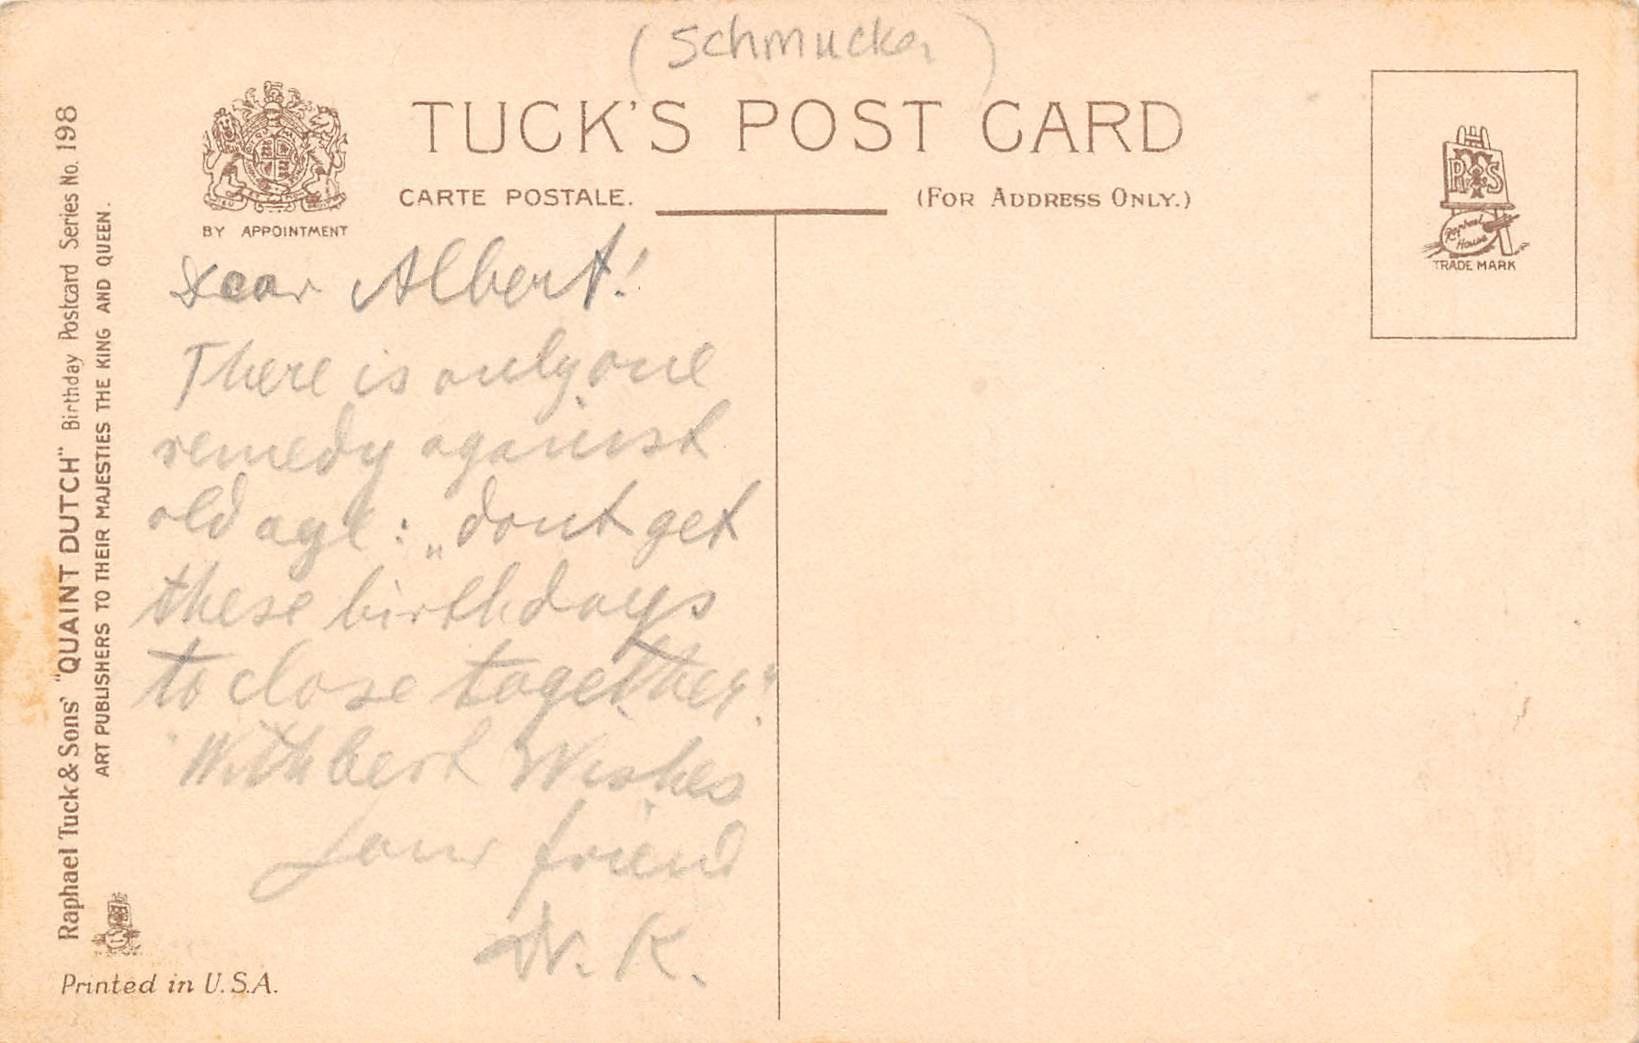 (Schmucker)
TUCK'S POST CARD
CARTE POSTALE.
(FOR ADDRESS ONLY.)
BY APPOINTMENT
RTS
Raphael House
TRADE MARK
Dear Albert!
There is only one
remedy against
old age: „dont get
these birthdays
to close together".
With best Wishes
your friend
W. K.
Raphael Tuck & Sons' "QUAINT DUTCH" Birthday Postcard Series No. 198
ART PUBLISHERS TO THEIR MAJESTIES THE KING AND QUEEN.
Printed in U.S.A.